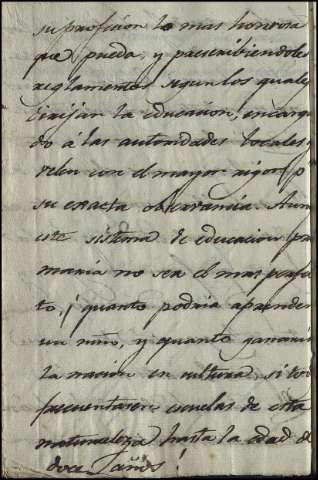 su profesion lo mas honrosa
que pueda, y prescribiendoles
reglamentos segun los quales
dirijan la educacion, encargan
do á las autoridades locales
velen con el mayor rigor pr
su exacta observancia. Aun
este sistema de educacion pri
maria no sea el mas perfec
to, ¡ quanto podria aprender
un niño, y quanto ganaria
la nacion en cultura, si tod
frecuentasen escuelas de esta
naturaleza hasta la edad de
doce años!